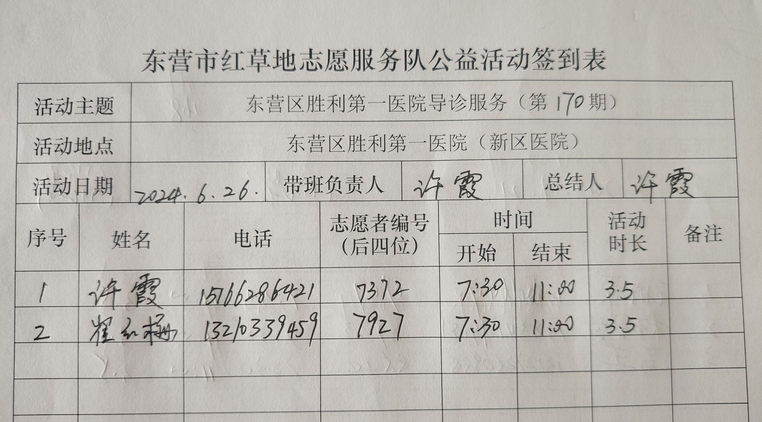 东营市红草地志愿服务队公益活动签到表
活动主题 东营区胜利第一医院导诊服务（第170期）
活动地点 东营区胜利第一医院（新区医院）
活动日期 2024.6.26. 带班负责人 许霞 总结人 许霞
序号 姓名 电话 志愿者编号（后四位） 时间 开始 结束 活动时长 备注
1 许霞 15166286421 7372 7:30 11:00 3.5
2 翟红梅 13210339459 7927 7:30 11:00 3.5